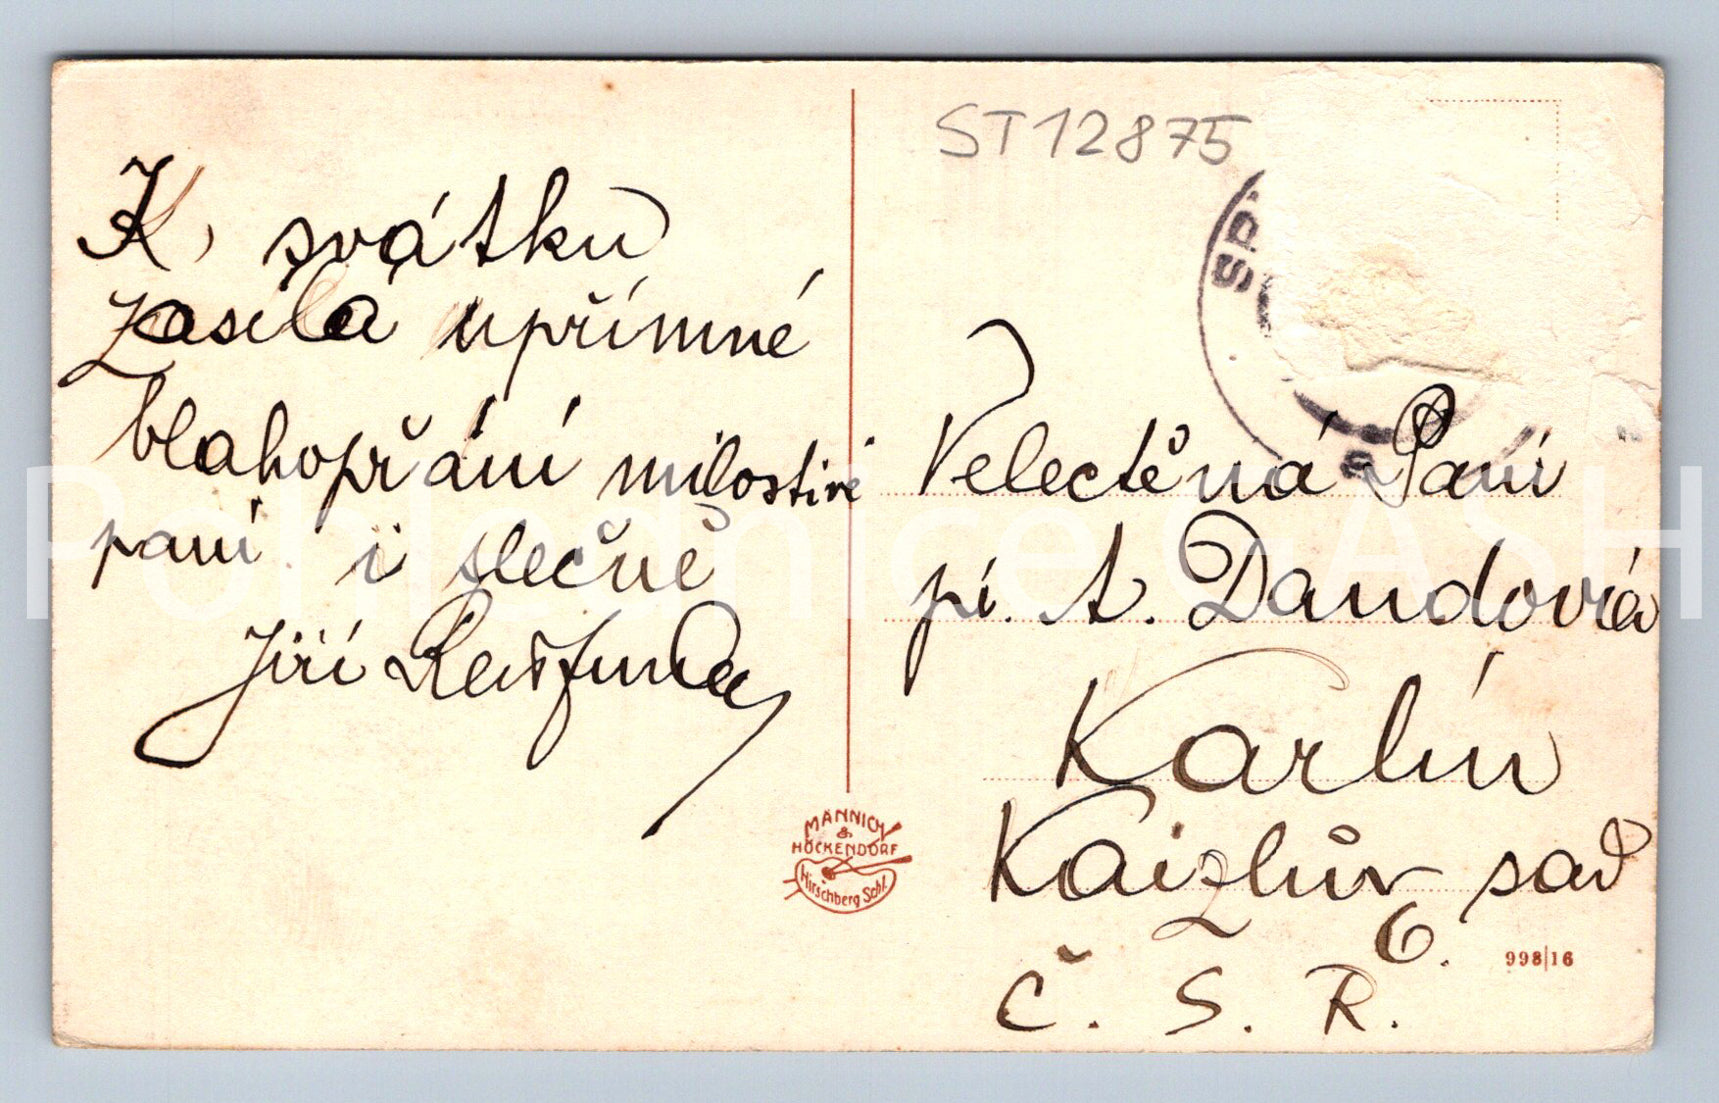 K svátku
zasílá upřímné
blahopřání milostivé
paní i slečně
Jiří
ST12875
SP.
Velectěná Paní
pí. A. Dandová
Karlín
Kaizlův sad
6.
Č. S. R.
MÄNNICH
&
HÖCKENDORF
Hirschberg Schl.
998|16
Pohlednice GASH